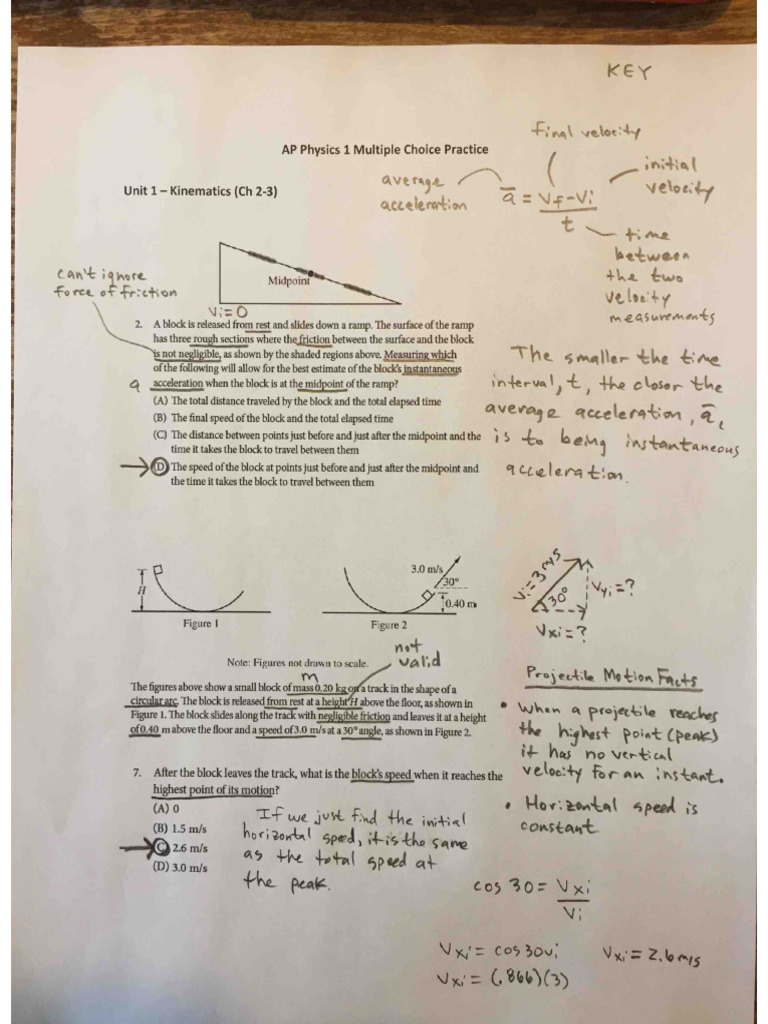 KEY
final velocity
AP Physics 1 Multiple Choice Practice
initial
velocity
average
acceleration
a̅ = Vf-Vi
t
Unit 1 – Kinematics (Ch 2-3)
time
between
the two
velocity
measurements
can't ignore
force of friction
Midpoint
Vi=0
2. A block is released from rest and slides down a ramp. The surface of the ramp
has three rough sections where the friction between the surface and the block
is not negligible, as shown by the shaded regions above. Measuring which
of the following will allow for the best estimate of the block's instantaneous
a acceleration when the block is at the midpoint of the ramp?
(A) The total distance traveled by the block and the total elapsed time
(B) The final speed of the block and the total elapsed time
(C) The distance between points just before and just after the midpoint and the
time it takes the block to travel between them
(D) The speed of the block at points just before and just after the midpoint and
the time it takes the block to travel between them
The smaller the time
interval, t, the closer the
average acceleration, a̅,
is to being instantaneous
acceleration.
H
Figure 1
3.0 m/s
30°
0.40 m
Figure 2
Vi=3 m/s
30°
Vyi=?
Vxi=?
Note: Figures not drawn to scale.
not
valid
m
The figures above show a small block of mass 0.20 kg on a track in the shape of a
circular arc. The block is released from rest at a height H above the floor, as shown in
Figure 1. The block slides along the track with negligible friction and leaves it at a height
of 0.40 m above the floor and a speed of 3.0 m/s at a 30° angle, as shown in Figure 2.
Projectile Motion Facts
• When a projectile reaches
the highest point (peak)
it has no vertical
velocity for an instant.
• Horizontal speed is
constant.
7. After the block leaves the track, what is the block's speed when it reaches the
highest point of its motion?
(A) 0
(B) 1.5 m/s
(C) 2.6 m/s
(D) 3.0 m/s
If we just find the initial
horizontal speed, it is the same
as the total speed at
the peak.
cos 30 = Vxi
Vi
Vxi = cos30vi Vxi = 2.6m/s
Vxi = (.866)(3)